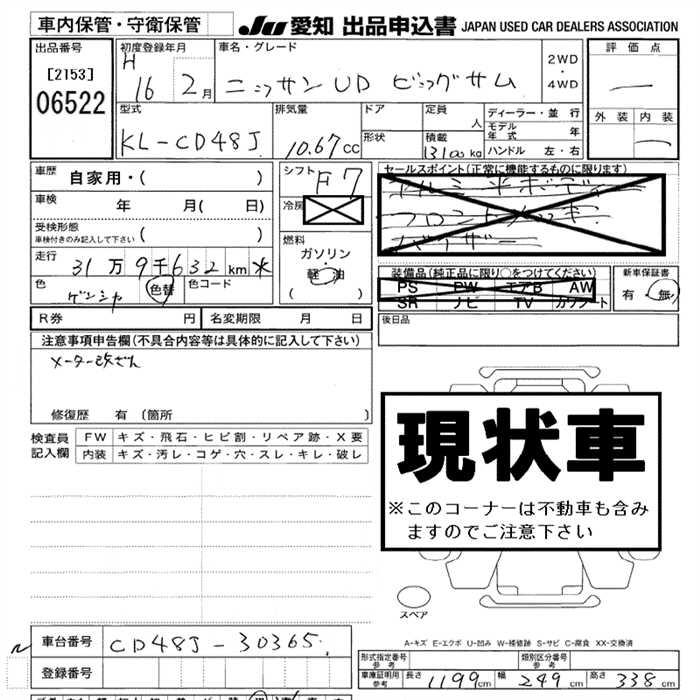 車内保管・守衛保管
JU 愛知 出品申込書 JAPAN USED CAR DEALERS ASSOCIATION
出品番号 初度登録年月 車名・グレード 評価点
[2153]
06522
H 16 2月 ニッサンUD ビッグサム 2WD・4WD
型式 排気量 ドア 定員 ディーラー・並行 外装 内装
KL-CD48J 10.67cc 形状 人 積載 13100kg モデル年式 年 ハンドル 左・右
車歴 自家用・( )
シフト F7
セールスポイント(正常に機能するものに限ります)
アルミ
フロント
バイザー
車検 年 月( 日)
冷房
受検形態
車検付きのみ記入して下さい ( )
燃料 ガソリン・軽油 ( )
走行 31万9千632km *
色 ゲンシャ 色替 色コード
装備品(純正品に限り○をつけてください) 新車保証書
PS PW エアB AW
SR ナビ TV カワシート
有・無
R券 円 名変期限 月 日
後日品
注意事項申告欄(不具合内容等は具体的に記入して下さい)
メーター改ざん
修復歴 有 〔箇所 〕
検査員記入欄 FW キズ・飛石・ヒビ割・リペア跡・X要
内装 キズ・汚レ・コゲ・穴・スレ・キレ・破レ
現状車
※このコーナーは不動車も含み
ますのでご注意下さい
スペア
A-キズ E-エクボ U-凹み W-補修跡 S-サビ C-腐食 XX-交換済
車台番号 CD48J-30365
登録番号
形式指定番号 参考 類別区分番号 参考
車庫証明用 参考 長さ 1199cm 幅 249cm 高さ 338cm